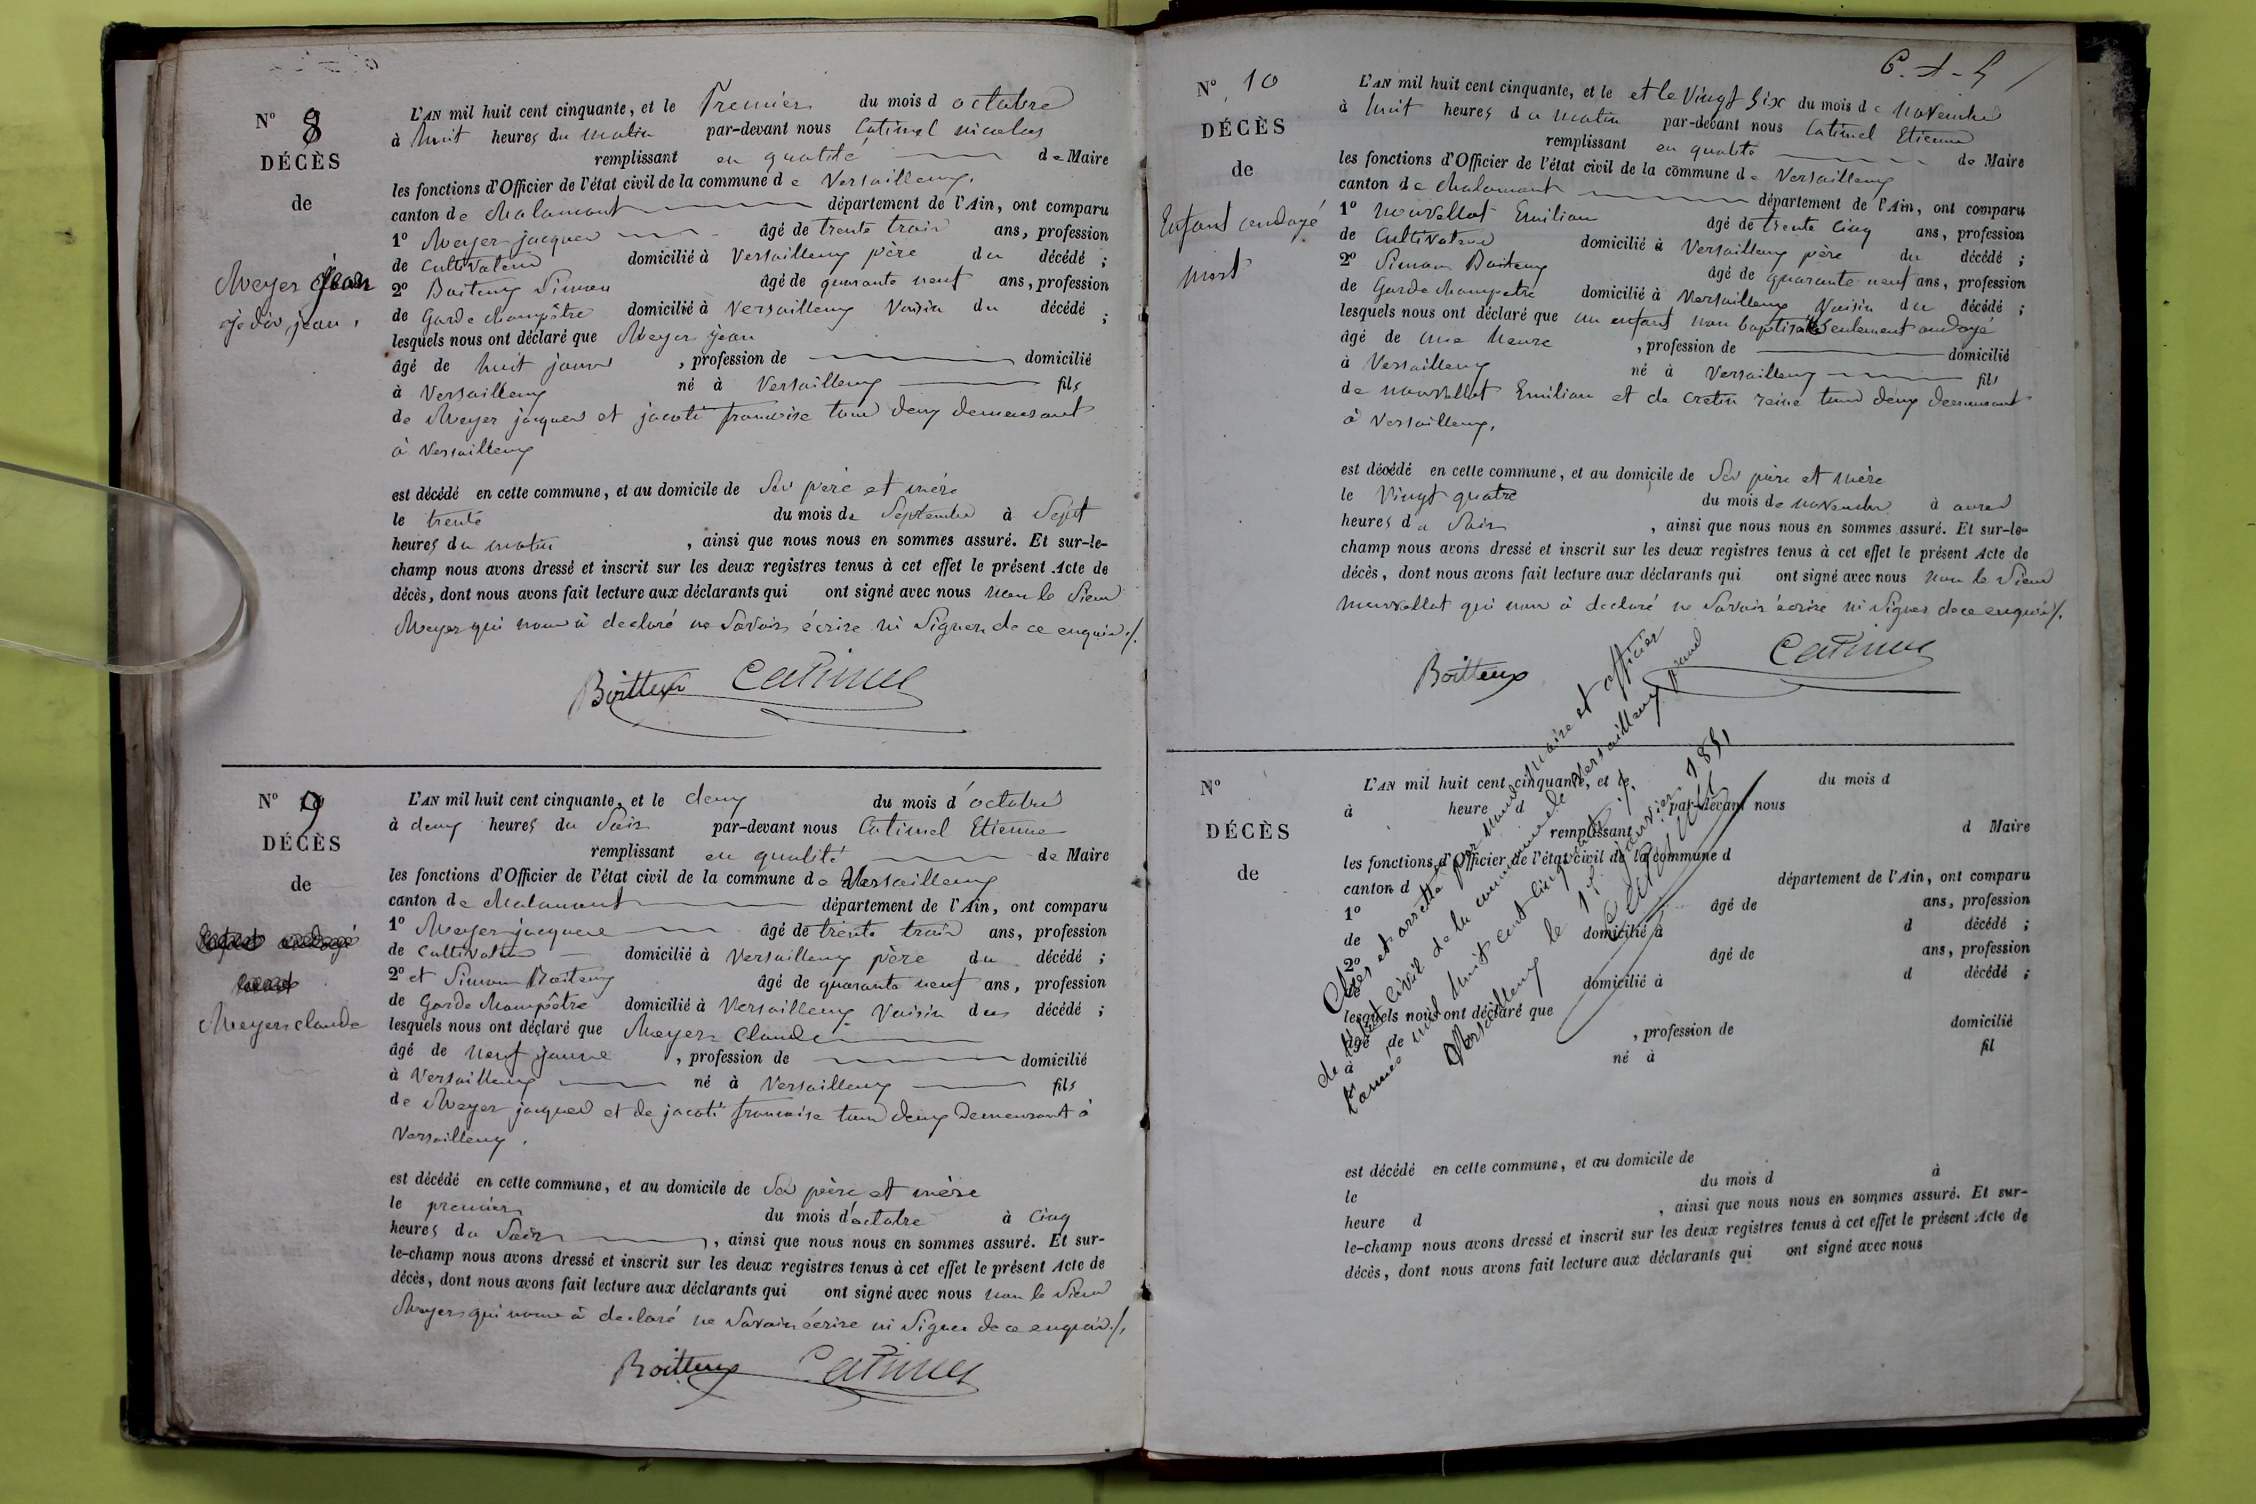 N° 8
DÉCÈS
de
Meyer Jean
je dis, jean,
L'AN mil huit cent cinquante, et le Premier du mois d octobre
à huit heures du matin par-devant nous Catimel nicolas
remplissant en qualité de Maire
les fonctions d'Officier de l'état civil de la commune de Versailleux,
canton de chalamont département de l'Ain, ont comparu
1° Meyer jacques âgé de trente trois ans, profession
de Cultivateur domicilié à Versailleux père du décédé ;
2° Boiteux Simon âgé de quarante neuf ans, profession
de Garde champêtre domicilié à Versailleux Voisin du décédé ;
lesquels nous ont déclaré que Meyer jean
âgé de huit jours , profession de domicilié
à Versailleux né à Versailleux fils
de Meyer jacques et jacoti francoise tous deux demeurant
à Versailleux
est décédé en cette commune, et au domicile de Ses père et mère
le trente du mois de Septembre à Sept
heures du matin , ainsi que nous nous en sommes assuré. Et sur-le-
champ nous avons dressé et inscrit sur les deux registres tenus à cet effet le présent Acte de
décès, dont nous avons fait lecture aux déclarants qui ont signé avec nous non le Sieur
Meyer qui nous à declaré ne Savoir écrire ni Signer de ce enquis ./.
Boitteux Catimel
N° 9
DÉCÈS
de
Meyer claude
L'AN mil huit cent cinquante, et le deux du mois d'octobre
à deux heures du Soir par-devant nous Catimel Etienne
remplissant en qualité de Maire
les fonctions d'Officier de l'état civil de la commune de Versailleux
canton de Chalamont département de l'Ain, ont comparu
1° Meyer jacques âgé de trente trois ans, profession
de Cultivateur domicilié à Versailleux père du décédé ;
2° et Simon Boiteux âgé de quarante neuf ans, profession
de Garde Champêtre domicilié à Versailleux Voisin du décédé ;
lesquels nous ont déclaré que Meyer Claude
âgé de neuf jours , profession de domicilié
à Versailleux né à Versailleux fils
de Meyer jacques et de jacoti francoise tous deux Demeurant à
Versailleux .
est décédé en cette commune, et au domicile de Ses père et mère
le premier du mois d'octobre à Cinq
heures du Soir , ainsi que nous nous en sommes assuré. Et sur-
le-champ nous avons dressé et inscrit sur les deux registres tenus à cet effet le présent Acte de
décès, dont nous avons fait lecture aux déclarants qui ont signé avec nous non le Sieur
Meyer qui nous à declaré ne Savoir écrire ni Signer de ce enquis ./.
Boitteux Catimel
N° 10
DÉCÈS
de
Enfant ondoyé
mort
L'AN mil huit cent cinquante, et le et le Vingt Six du mois de novembre
à huit heures du matin par-devant nous Catimel Etienne
remplissant en qualité de Maire
les fonctions d'Officier de l'état civil de la commune de Versailleux
canton de chalamont département de l'Ain, ont comparu
1° nouvellot Emilian âgé de trente Cinq ans, profession
de Cultivateur domicilié à Versailleux père du décédé ;
2° Simon Boiteux âgé de quarante neuf ans, profession
de Garde champetre domicilié à Versailleux Voisin du décédé ;
lesquels nous ont déclaré que un enfant non baptisé Seulement ondoyé
âgé de une heure , profession de domicilié
à Versailleux né à Versailleux fils
de nouvellot Emilian et de cretin reine tous deux demeurant
à Versailleux,
est décédé en cette commune, et au domicile de Ses père et mère
le Vingt quatre du mois de novembre à onze
heures du Soir , ainsi que nous nous en sommes assuré. Et sur-le-
champ nous avons dressé et inscrit sur les deux registres tenus à cet effet le présent Acte de
décès, dont nous avons fait lecture aux déclarants qui ont signé avec nous non le Sieur
nouvellot qui nous à declaré ne Savoir écrire ni Signer de ce enquis ./.
Boitteux Catimel
N°
DÉCÈS
de
L'AN mil huit cent cinquante, et le du mois d
à heure d par-devant nous
remplissant d Maire
les fonctions d'Officier de l'état civil de la commune d
canton d département de l'Ain, ont comparu
1° âgé de ans, profession
de domicilié à d décédé ;
2° âgé de ans, profession
de domicilié à d décédé ;
lesquels nous ont déclaré que
âgé de , profession de domicilié
à né à fil
de
est décédé en cette commune, et au domicile de
le du mois d à
heure d , ainsi que nous nous en sommes assuré. Et sur-
le-champ nous avons dressé et inscrit sur les deux registres tenus à cet effet le présent Acte de
décès, dont nous avons fait lecture aux déclarants qui ont signé avec nous
Clos et arretté par nous Maire et officier
de l'état civil de la commune de Versailleux pour
l'année mil huit cent cinquante ./.
Versailleux le 1er janvier 1851
Catimel